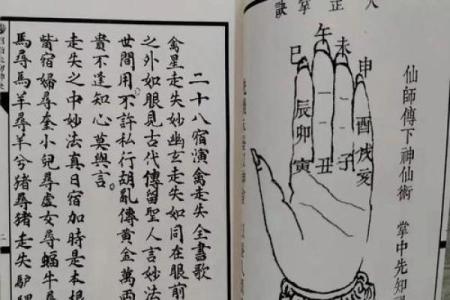 仙師傳下神仙術 掌中先知
巳
午
未
申
辰
酉
卯
戌
寅
丑
子
亥
二十八宿演禽走失全書歌
禽星走失妙幽玄走失如同在眼前
之外如眼見古代傳留聖人言妙法
世間用。不許私行胡亂傳黃金萬兩
貴不達知心莫與言。
走失之中妙法真日宿加時是本根
觜宿婦尋奎小兒尋虛女尋蝠牛尋
馬尋馬羊尋羊兮豬尋豬走失驢